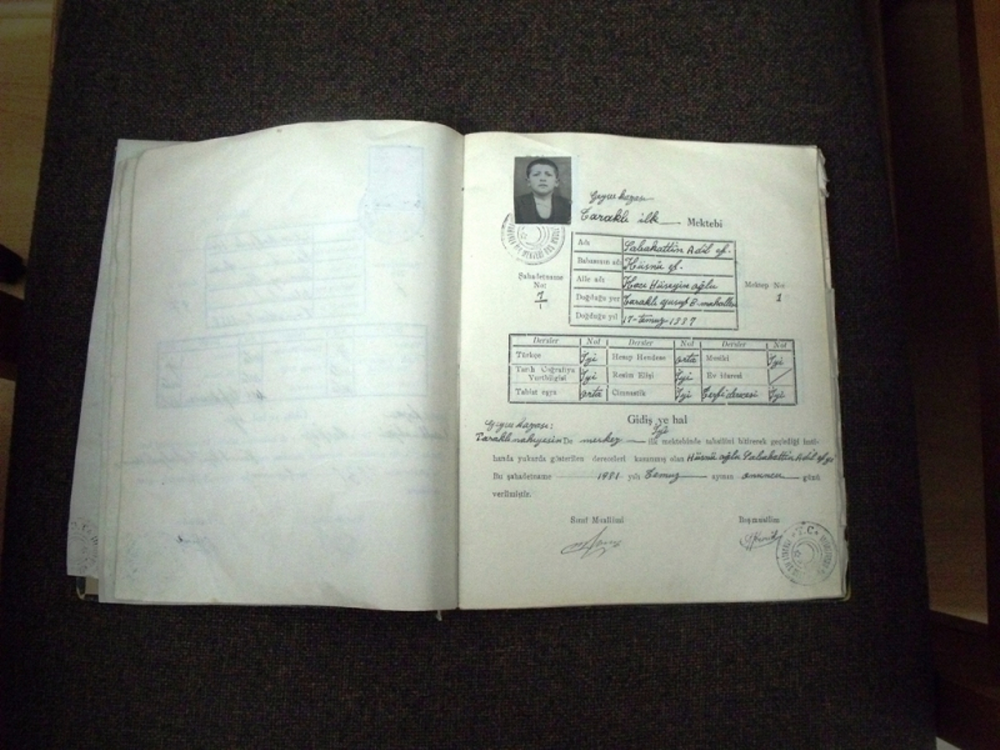 Geyve kazası
Taraklı ilk Mektebi
Adı Sabahattin Adil ef.
Babasının adı Hüsnü ef.
Şahadetname No: 1
Aile adı Hacı Hüseyin oğlu
Mektep No: 1
Doğduğu yer Taraklı yusuf B. mahallesi
Doğduğu yıl 17-temuz-1337
Dersler Not Dersler Not Dersler Not
Türkçe İyi Hesap Hendese orta Musiki İyi
Tarih Coğrafiya Yurtbilgisi İyi Resim Elişi İyi Ev idaresi
Tabiat eşya orta Cimnastik İyi
Gidiş ve hal
İyi
Geyve kazası:
Taraklı nahiyesin De merkez ilk mektebinde tahsilini bitirerek geçirdiği imti-
handa yukarda gösterilen dereceleri kazanmış olan Hüsnü oğlu Sabahattin Adil ef.ye
Bu şahadetname 1931 yılı Temuz ayının onuncu günü
verilmiştir.
Sınıf Muallimi Başmuallim
T.C.